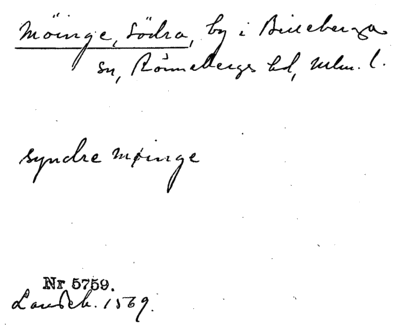 Möinge, Södra, by i Billeberga
sn, Rönnebergs hd, Mlm. l.
syndre møinge
Nr 5759.
Landeb. 1569.